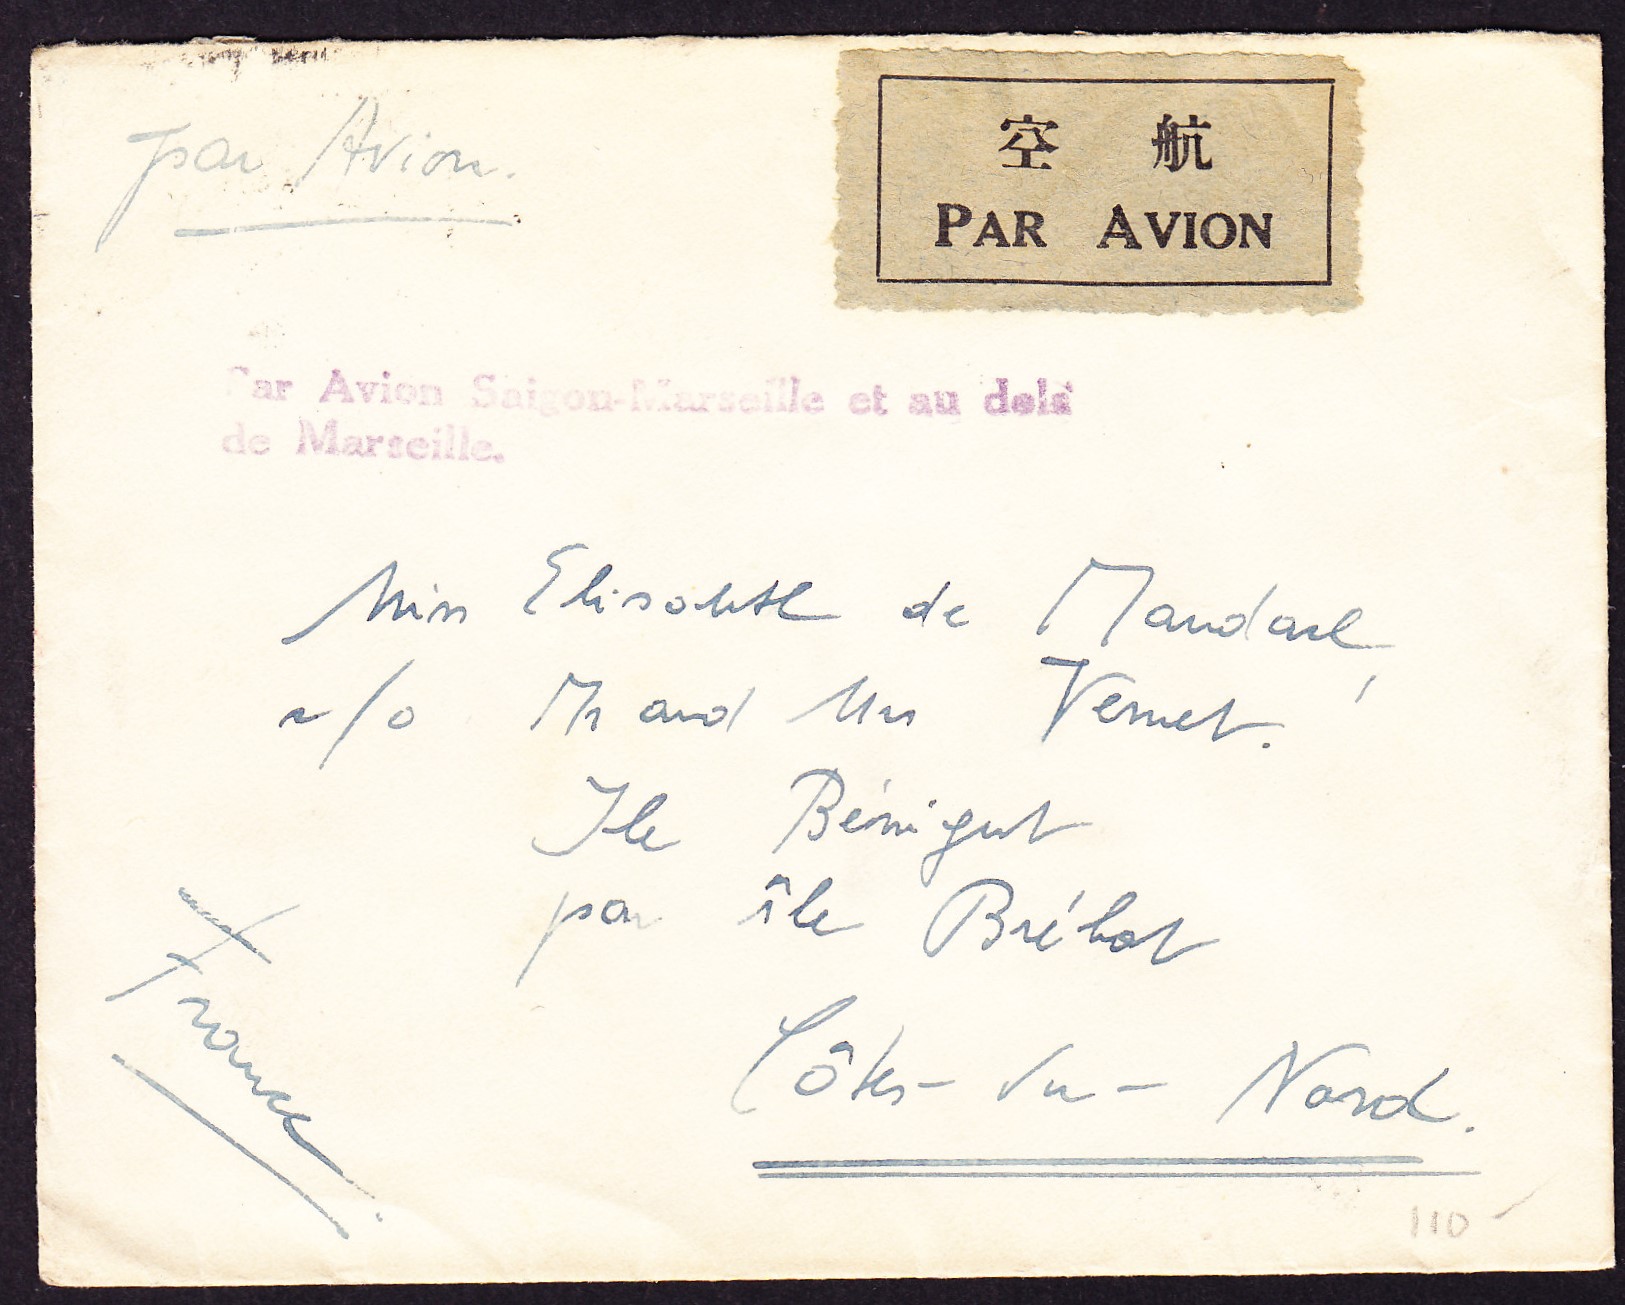 par Avion.
空 航
PAR AVION
Par Avion Saigon-Marseille et au delà
de Marseille.
Miss Elisabeth de
c/o Mr and Mrs Vernet.
Ile Béniguet
par île Bréhat
Côtes-du-Nord.
France
110